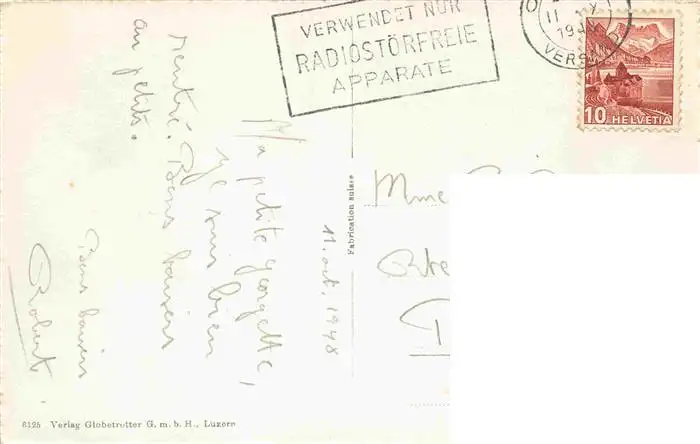 VERWENDET NUR
RADIOSTÖRFREIE
APPARATE
11
194
VERS
10 HELVETIA
11. oct. 1948
Ma petite georgette,
suis bien
rentré. Bons baisers
au petits.
Bons baisers
Robert
Fabrication suisse
Mme
Rte
6125 Verlag Globetrotter G. m. b. H., Luzern